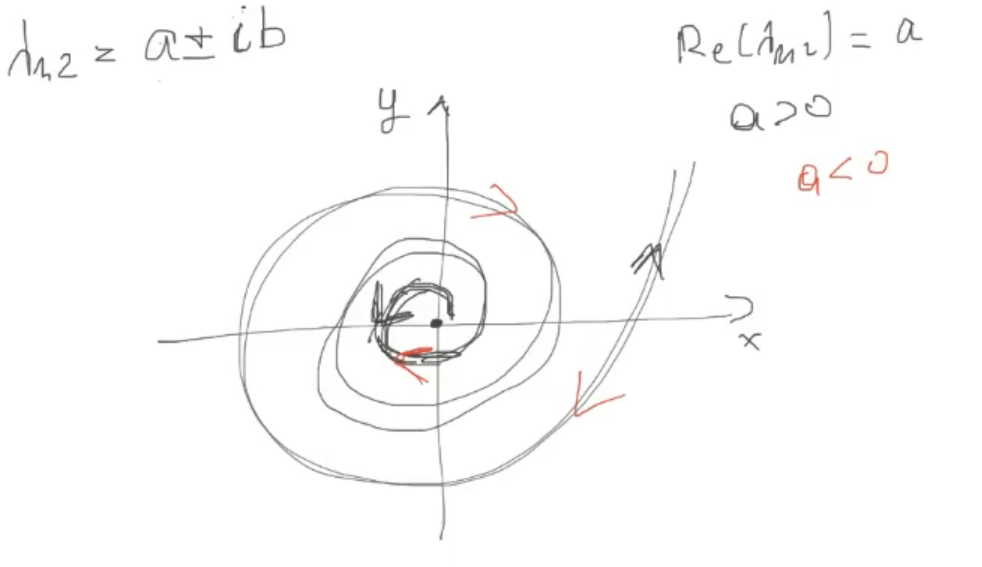 λ₁,₂ = a ± ib
Re(λ₁,₂) = a
a > 0
a < 0
y
x